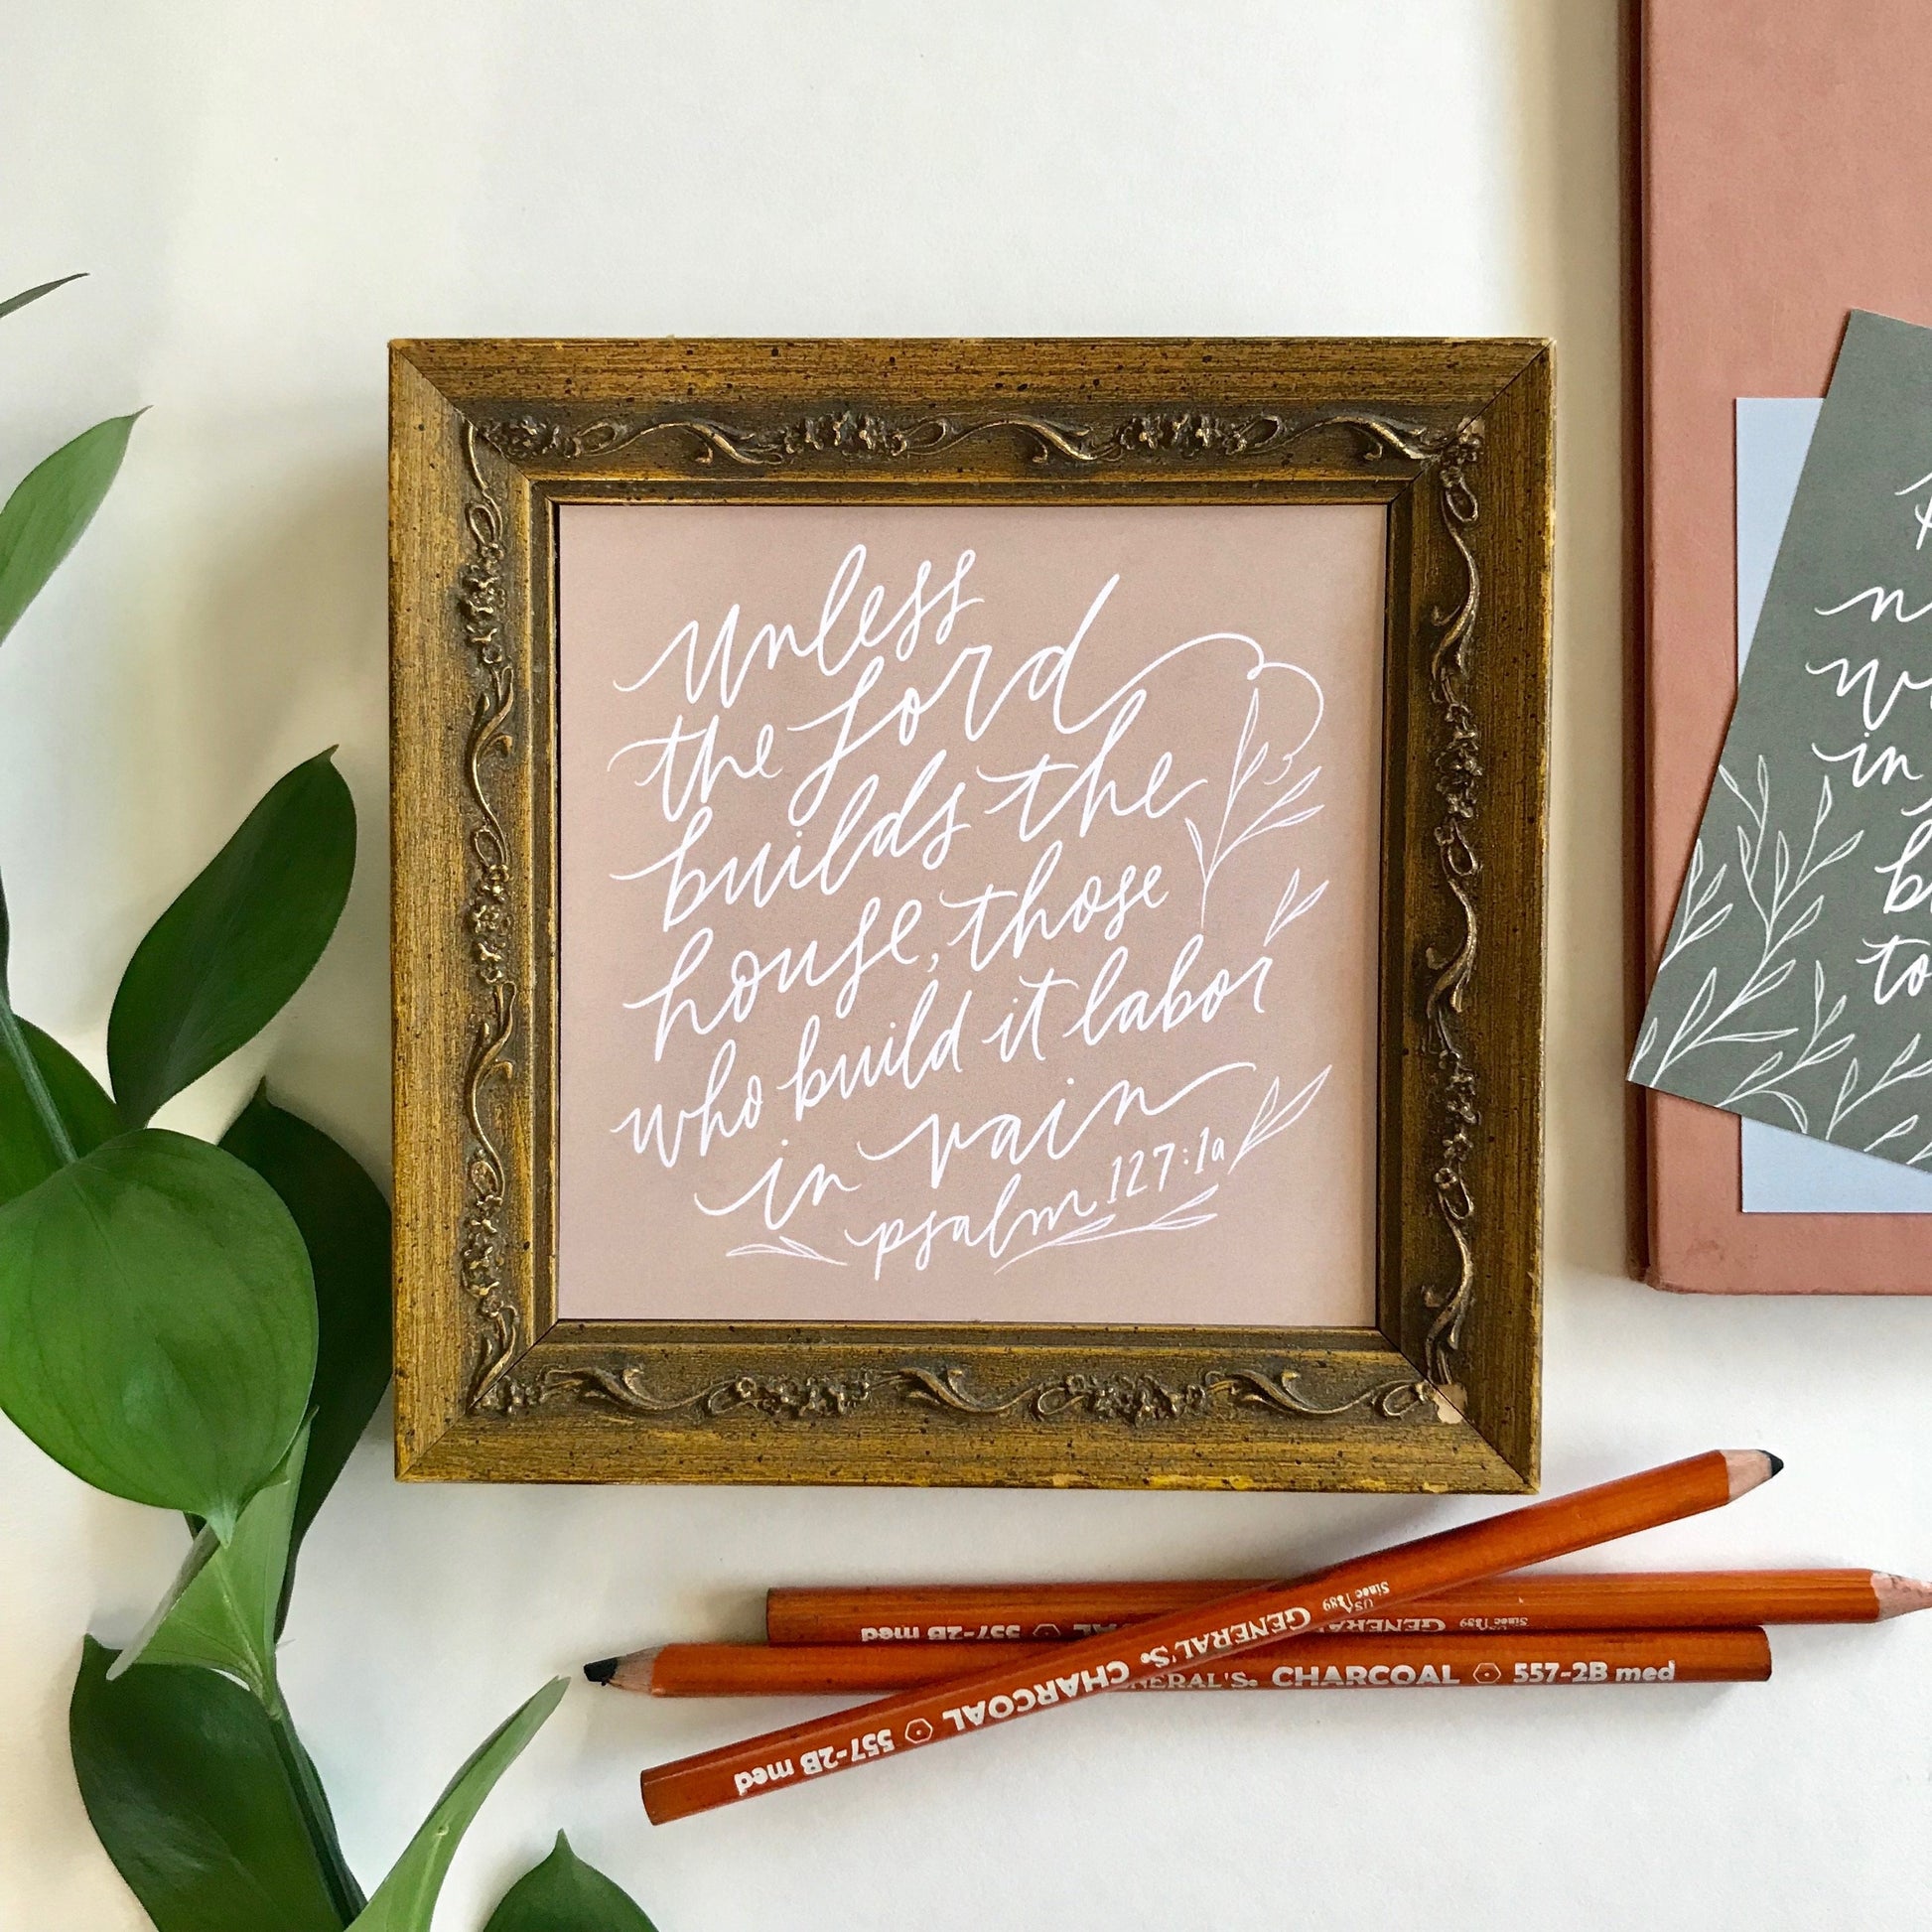 unless
the Lord
builds the
house, those
who build it labor
in vain
psalm 127:1a
in
557-2B med GENERAL'S
Since 1889
GENERAL'S. CHARCOAL 557-2B med
557-2B med CHARCOAL GENERAL'S. USA Since 1889